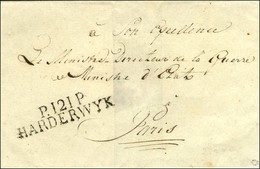 à Son Excellence
Le Ministre Directeur de la Guerre
Ministre d'Etat
P.121.P.
HARDERWYK
Paris